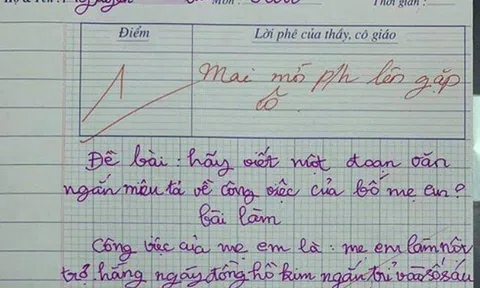 Họ & Tên : Môn : Thời gian :
Điểm Lời phê của thầy, cô giáo
1 Mai mời p/h lên gặp
cô
Đề bài : hãy viết một đoạn văn
ngắn miêu tả về công việc của bố mẹ em ?
bài làm
Công việc của mẹ em là : mẹ em làm nội
trợ, hằng ngày đồng hồ kim ngắn trỉ vào số sáu